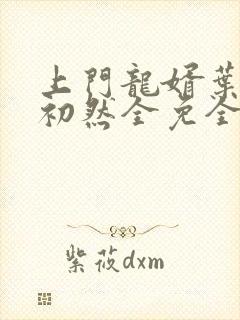 上門龍婿葉
初然全免全
紫莜dxm